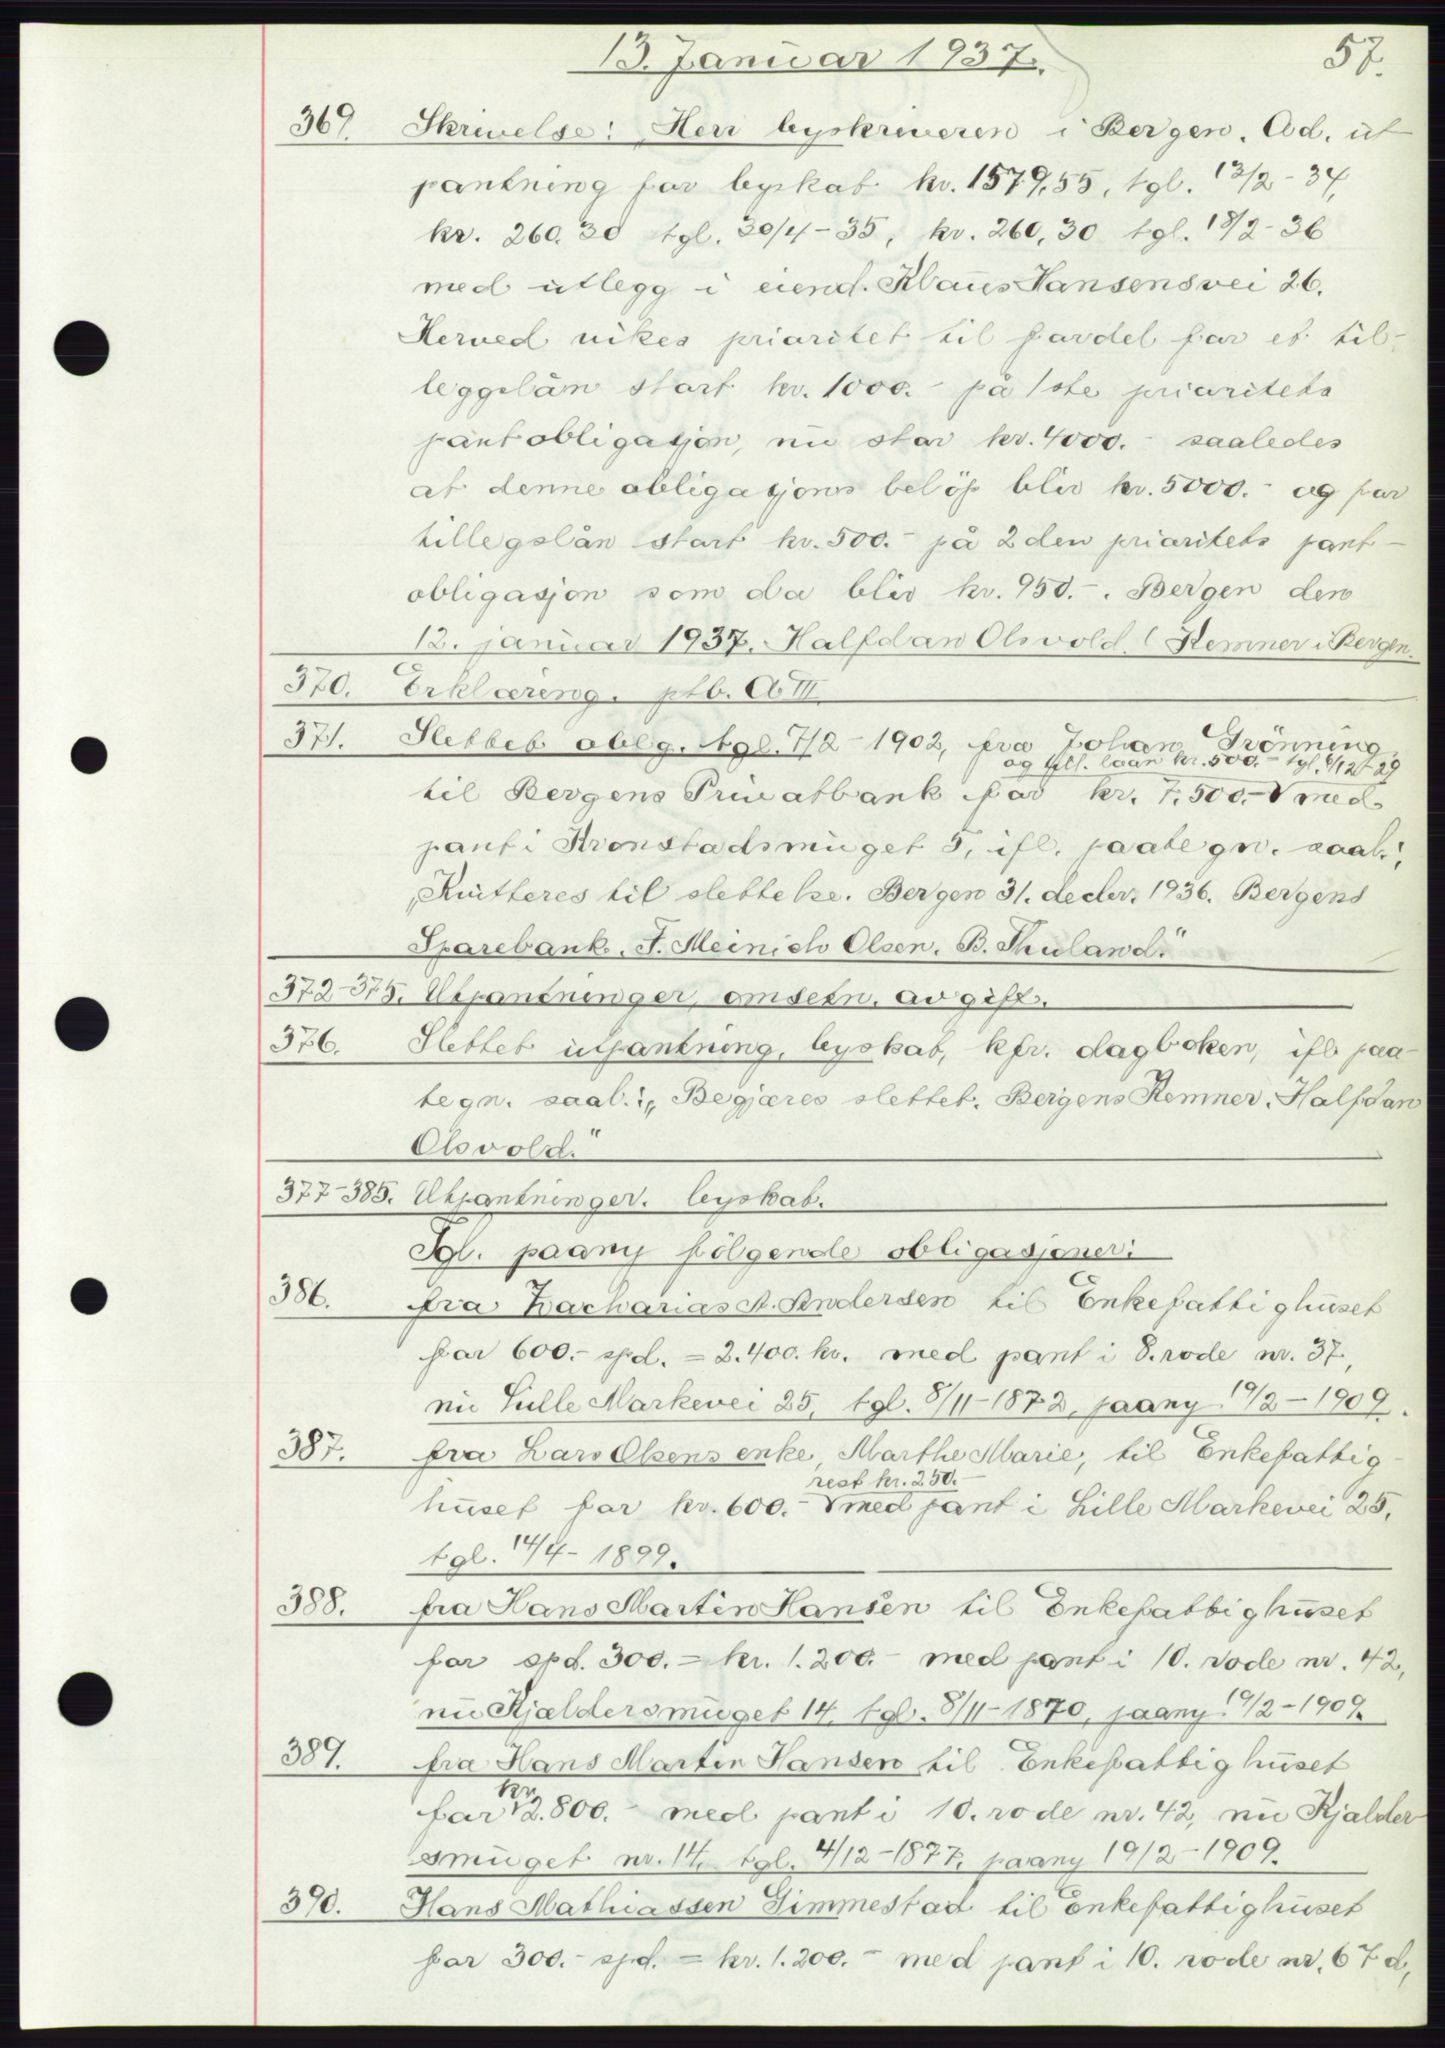 13. Januar 1937. 57.
369. Skrivelse: „Herr byskriveren i Bergen. Ad. ut
pantning for byskat kr. 1579,55, tgl. 13/2 - 34,
kr. 260.30 tgl. 30/4 - 35, kr. 260,30 tgl. 18/2 - 36
med utlegg i eiend. Klaus Hansensvei 26.
Herved vikes prioritet til fordel for et til-
leggslån stort kr. 1000.- på 1ste prioritets
pantobligasjon, nu stor kr. 4000.- saaledes
at denne obligasjons beløp blir kr. 5000.- og for
tillegslån stort kr. 500.- på 2den prioritets pant-
obligasjon som da blir kr. 950.-. Bergen den
12. januar 1937. Halfdan Olsvold. (Kemner i Bergen.
370. Erklæring. ptb. A III
371. Slettet oblg. tgl. 7/2 - 1902, fra Johan Grönning
og till. laan kr. 500.- tgl. 6/12-29
til Bergens Privatbank for kr. 7.500.- V med
pant i Kronstadsmuget 5, ifl. paategn. saal.:
„Kvitteres til slettelse. Bergen 31. decbr. 1936. Bergens
Sparebank. F. Meinich Olsen. B. Thuland."
372-375. Utpantninger, omsetn. avgift.
376. Slettet utpantning, byskat, kfr. dagboken, ifl paa-
tegn. saal.: „Begjæres slettet. Bergens Kemner. Halfdan
Olsvold."
377-385. Utpantninger. byskat.
Tgl. paany følgende obligasjoner:
386. fra Zacharias A. Andersen til Enkefattighuset
for 600.- spd. = 2.400. kr. med pant i 8. rode nr. 37,
nu Lille Markevei 25, tgl. 8/11-1872, paany 19/2 - 1909.
387. fra Lars Olsens enke, Marthe Marie, til Enkefattig-
rest kr. 250.-
huset for kr. 600.- V med pant i Lille Markevei 25,
tgl. 14/4 - 1899.
388. fra Hans Martin Hansen til Enkefattighuset
for spd. 300. = kr. 1.200.- med pant i 10. rode nr. 42,
nu Kjældersmuget 14, tgl. 8/11-1870, paany 19/2 - 1909.
389. fra Hans Martin Hansen til Enkefattighuset
kr
for V 2.800.- med pant i 10. rode nr. 42, nu Kjælder
smuget nr. 14, tgl. 4/12-1877, paany 19/2 - 1909.
390. Hans Mathiassen Gimmestad til Enkefattighuset
for 300.- spd. = kr. 1.200.- med pant i 10. rode nr. 67 d,